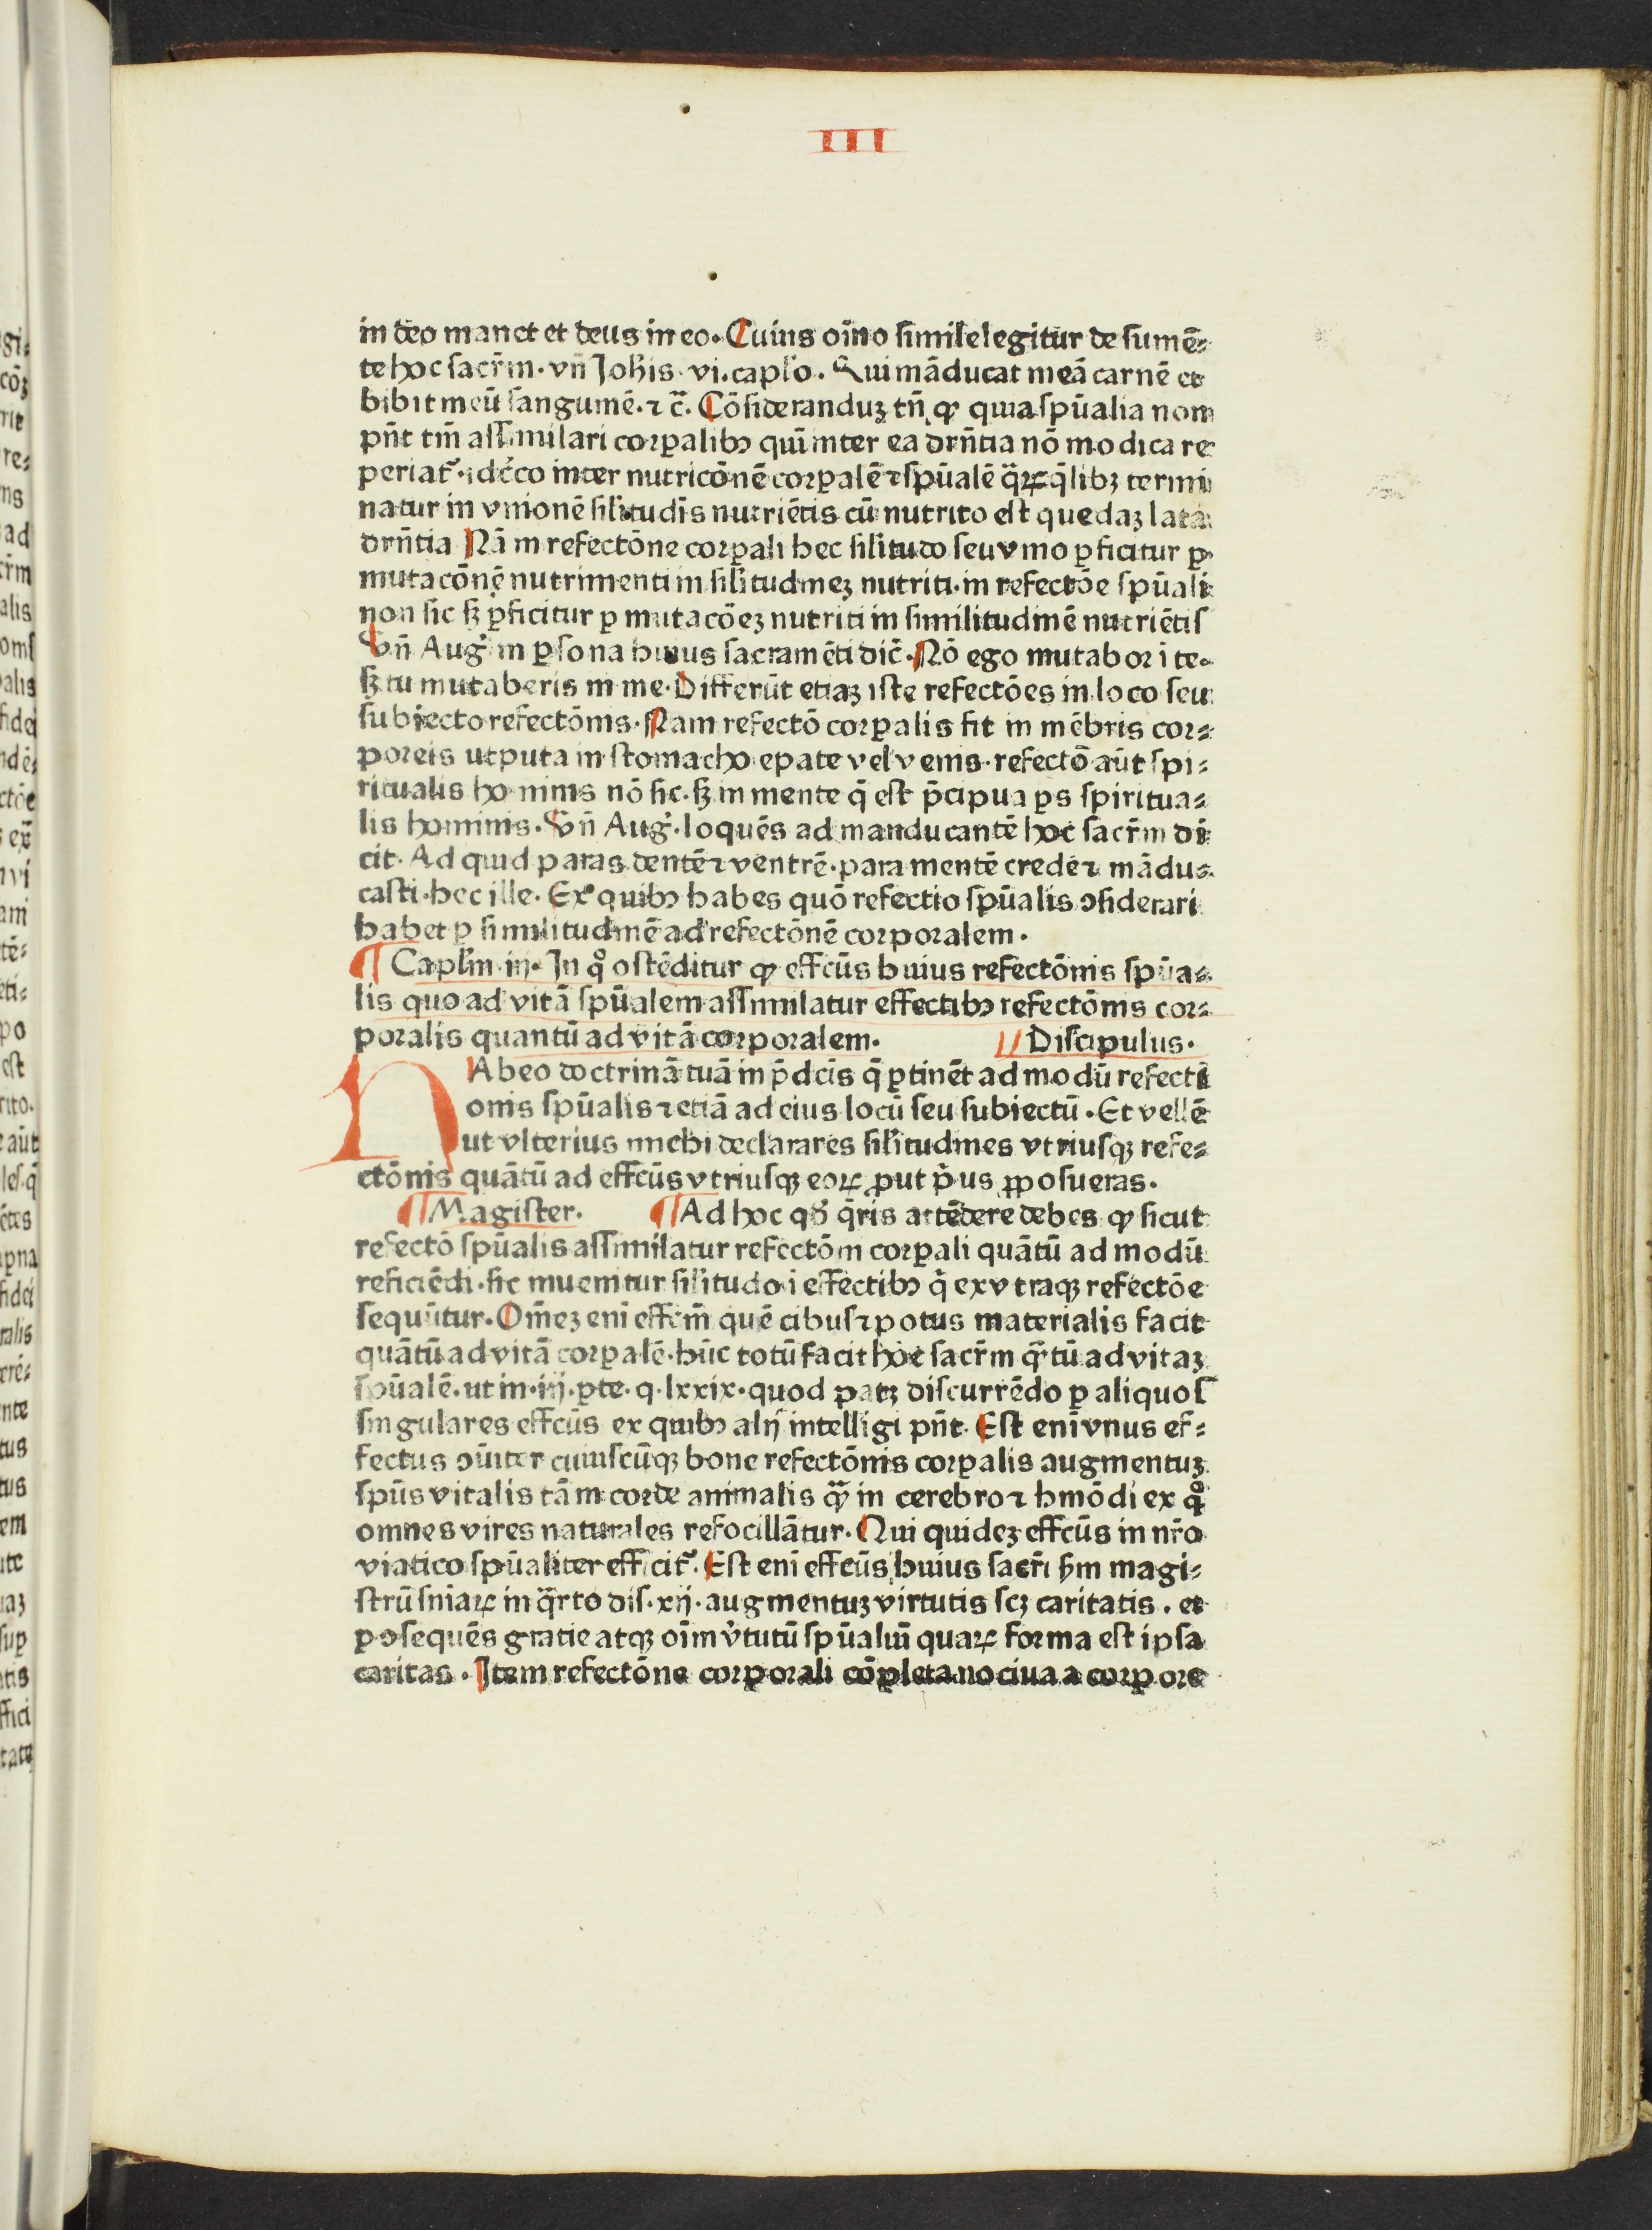 III
in deo manet et deus in eo. Cuius oīno simile legitur de sumē-
te hoc sacr̄m. vn̄ Joh̄is vi. cap̄lo. Qui māducat meā carnē et
bibit meū sanguinē. ⁊ c̄. Cōsideranduꝫ tn̄ ꝙ quia spūalia non
pn̄t tm̄ assimilari corꝑalibꝰ quī inter ea drn̄tia nō modica re
periat᷑. idcco inter nutricōnē corꝑalē ⁊ spūalē q̄rꝝ q̄libꝫ termi
natur in vnionē sil̄itudīs nutriētis cū nutrito est quedaꝫ lata
drn̄tia Nā in refectōne corꝑali hec sil̄itudo seu vnio ꝑficitur ꝑ
mutacōnē nutrimenti in sil̄itudineꝫ nutriti. in refectōe spūali
non sic sꝫ ꝑficitur ꝑ mutacōeꝫ nutriti in similitudinē nutriētis
Vn̄ Aug᷑ in ꝑsona huius sacramēti dic̄. Nō ego mutabor ī te.
sꝫ tu mutaberis in me. Differūt etiaꝫ iste refectōes in loco seu
subiecto refectōnis. Nam refectō corꝑalis fit in mēbris cor-
poreis utputa in stomacho epate vel venis. refectō aūt spi-
ritualis hominis nō sic. sꝫ in mente q̄ est p̄cipua ꝑs spiritua-
lis hominis. Vn̄ Aug᷑. loquēs ad manducantē hoc sacr̄m di
cit. Ad quid paras dentē ⁊ ventrē. para mentē crede ⁊ mādu-
casti. hec ille. Ex quibꝰ habes quō refectio spūalis ꝯsiderari
habet ꝑ similitudinē ad refectōnē corporalem.
¶ Capl̄m iij. In qͦ ostēditur ꝙ effcūs huius refectōnis spūa-
lis quo ad vitā spūalem assimilatur effectibꝰ refectōnis cor-
poralis quantū ad vitā corporalem. Discipulus.
HAbeo doctrinā tuā in p̄dcīs q̄ ꝑtinēt ad modū refecti
onis spūalis ⁊ etiā ad eius locū seu subiectū. Et vellē
ut vlterius michi declarares sil̄itudines vtriusqꝫ refe-
ctōnis quātū ad effcūs vtriusqꝫ eorꝝ ꝓut p̄us ꝓposueras.
¶ Magister. ¶ Ad hoc qd̄ q̄ris attēdere debes ꝙ sicut
refectō spūalis assimilatur refectōni corꝑali quātū ad modū
reficiēdi. sic inuenitur sil̄itudo ī effectibꝰ q̄ ex vtraqꝫ refectōe
sequūtur. Om̄eꝫ enī effcm̄ quē cibus ⁊ potus materialis facit
quātū ad vitā corꝑalē. hūc totū facit hoc sacr̄m q̄tū ad vitaꝫ
spūalē. ut in. iij. ꝑte. q. lxxix. quod patꝫ discurrēdo ꝑ aliquos
singulares effcūs ex quibꝰ alij intelligi pn̄t. Est enī vnus ef-
fectus ꝯūiter cuiuscūqꝫ bone refectōnis corꝑalis augmentuꝫ
spūs vitalis tā in corde animalis q̄ in cerebro ⁊ hmōdi ex qͦ
omnes vires naturales refocillātur. Qui quideꝫ effcūs in nr̄o
viatico spūaliter efficit᷑. Est enī effcūs huius sacr̄i ẜm magi-
strū sniarꝝ in q̄rto dis. xij. augmentuꝫ virtutis scꝫ caritatis. et
ꝑ ꝯsequēs gratie atqꝫ oīm v̄tutū spūaliū quarꝝ forma est ipsa
caritas. Item refectōne corꝑorali cōpleta nociua a corꝑore